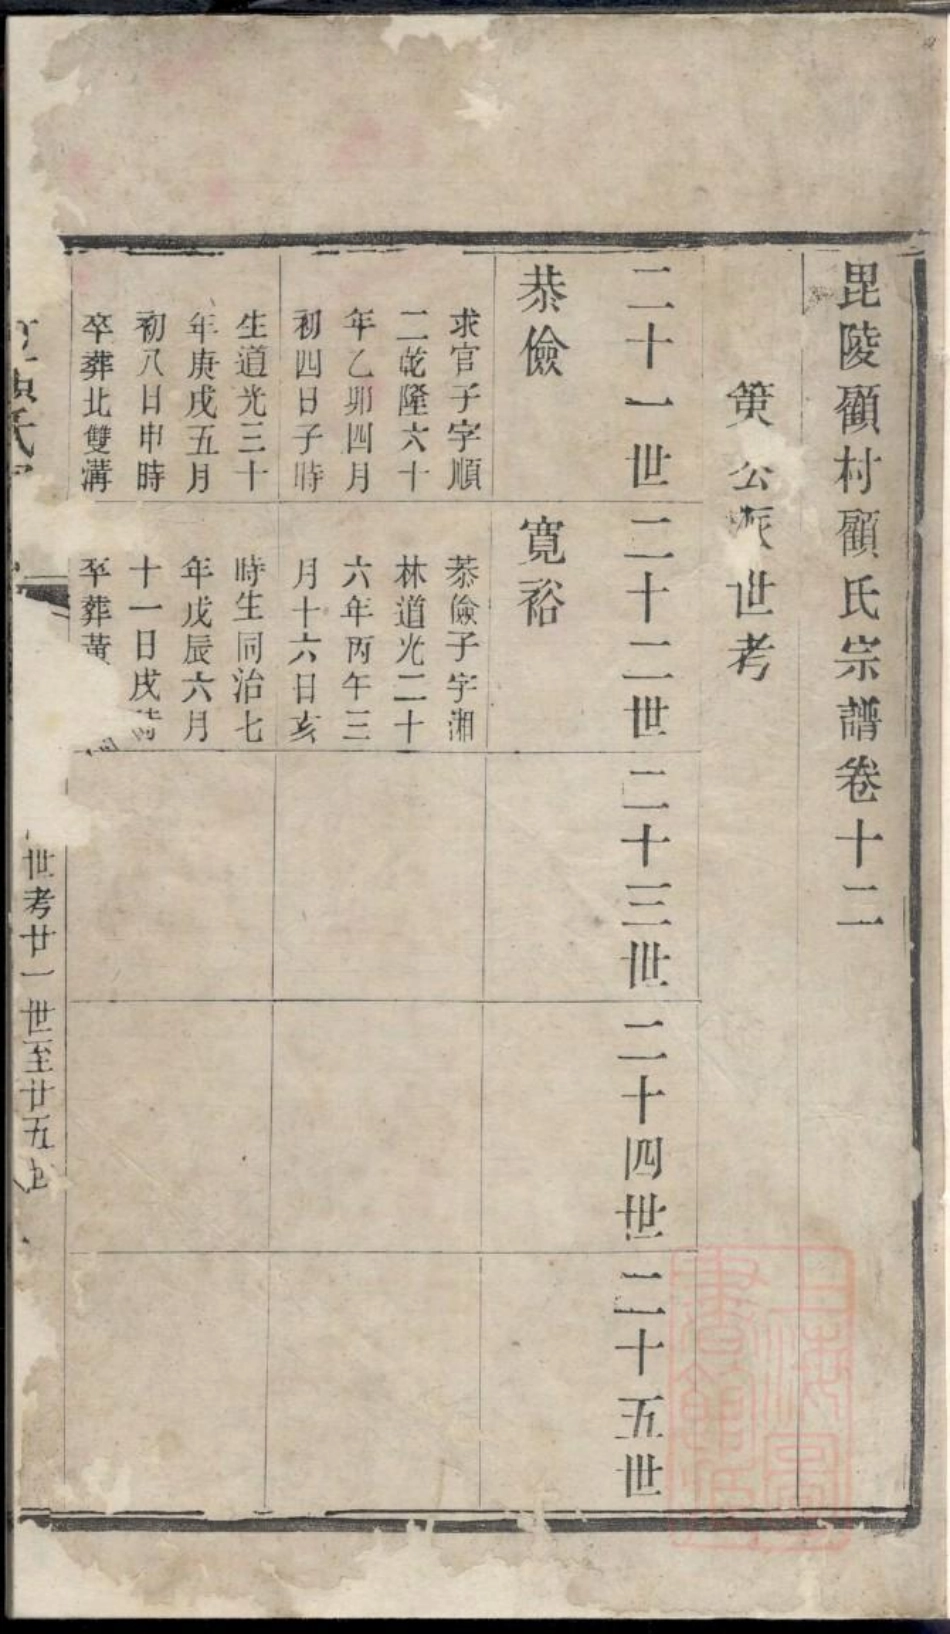 毘陵顧村顧氏宗譜卷十二
公派世考
二十一世
二十二世
二十三世
二十四世
二十五世
恭儉
求官子字順
二乾隆六十
年乙卯四月
初四日子時
生道光三十
年庚戌五月
初八日申時
卒葬北雙溝
寬裕
恭儉子字湘
林道光二十
六年丙午三
月十六日亥
時生同治七
年戊辰六月
十一日戌時
卒葬黃
氏
世考廿一世至廿五世